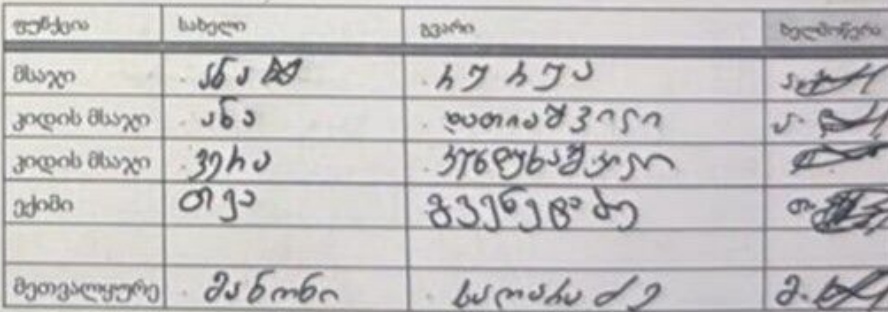 ფუნქცია სახელი გვარი ხელმოწერა
მსაჯი ანა რურუა
კიდის მსაჯი ანა დათიაშვილი
კიდის მსაჯი ვერა
ექიმი თეა გვენეტაძე
მეთვალყურე მანონი სალარაძე